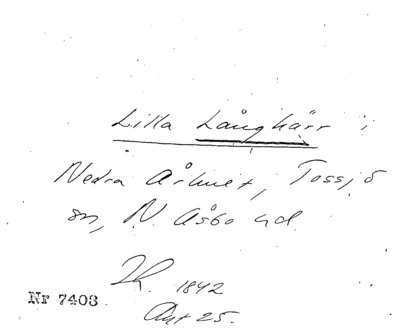 Lilla Långhärr i
Nedra Århult, Tossjö
sn, N. Åsbo hd.
Ih. 1842
Aug 25.
Nr 7403.